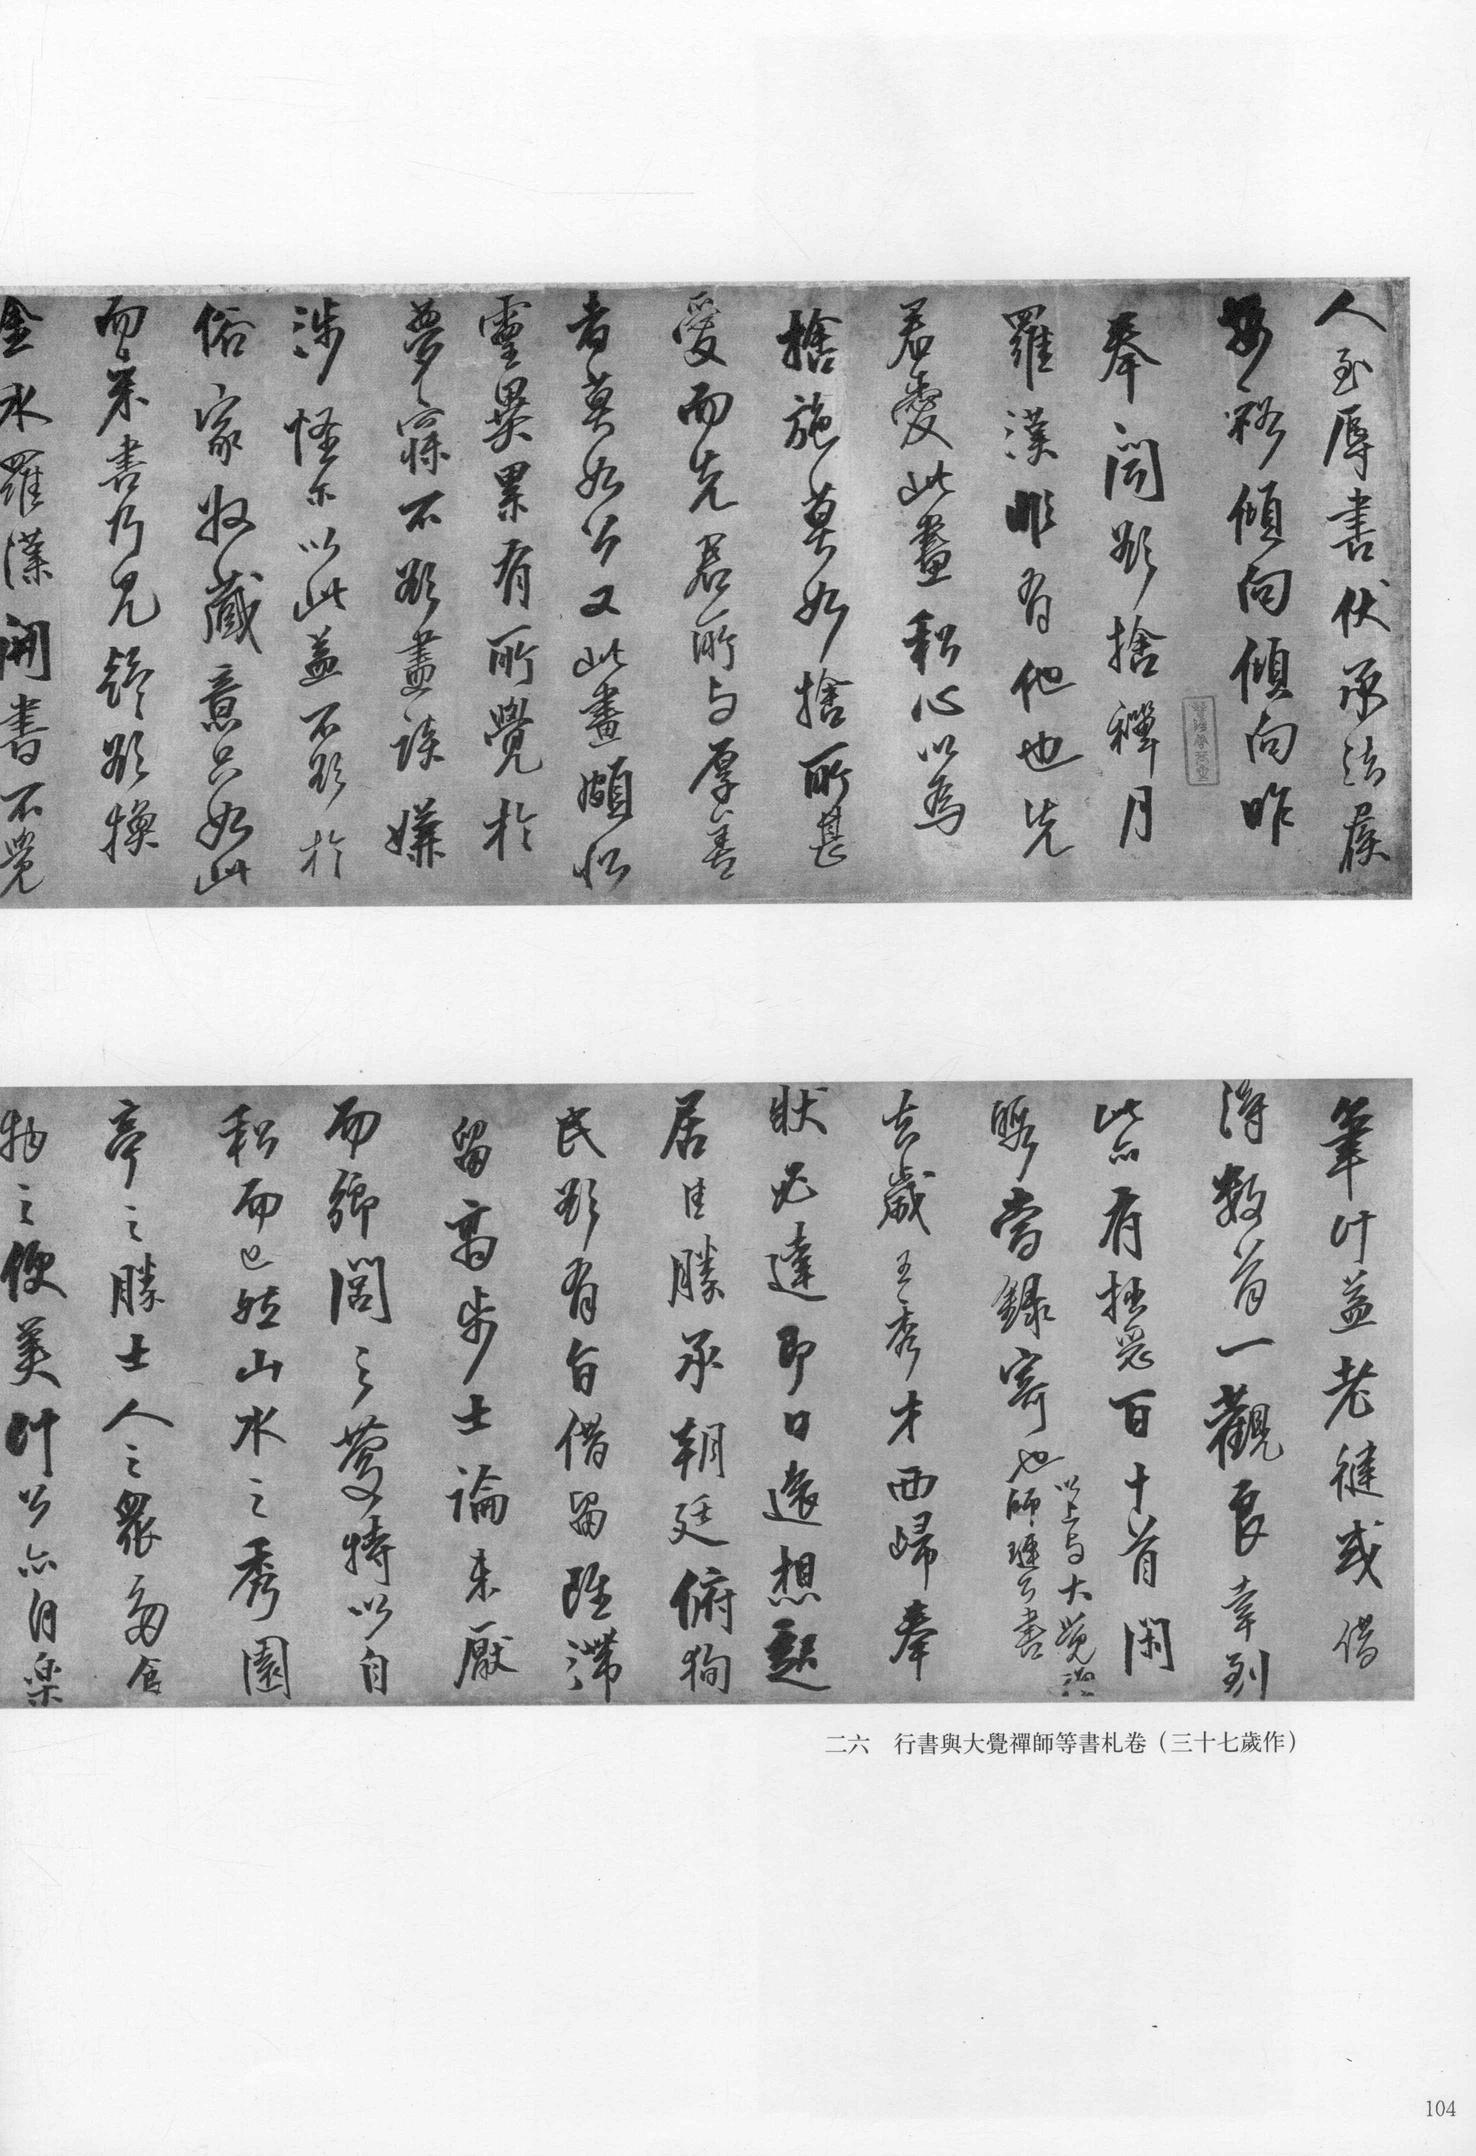 人至辱書伏承法候
安裕傾向傾向昨
奉聞欲捨禪月
羅漢非有他也先
君愛此畫私心以為
捨施莫如捨所甚
愛而先君所与厚善
者莫如公又此畫頗似
靈異累有所覺於
夢寐不欲盡談嫌
涉怪尔以此益不欲於
俗家收藏意只如此
而来書乃見疑欲換
金水羅漢開書不覺
筆計益老健或借
得数首一觀良幸到
此亦有拙惡百十首閑
暇當錄寄也以上与大覺禅師璉公書
去歲王秀才西歸奉
狀必達即日遠想起
居佳勝承朝廷俯徇
民欲有旨借留既滞
留高步士論未厭
而鄉閭之慶特以自
私而已然山水之秀園
亭之勝士人之衆多食
物之便美計公亦自樂
二六　行書與大覺禪師等書札卷（三十七歲作）
104